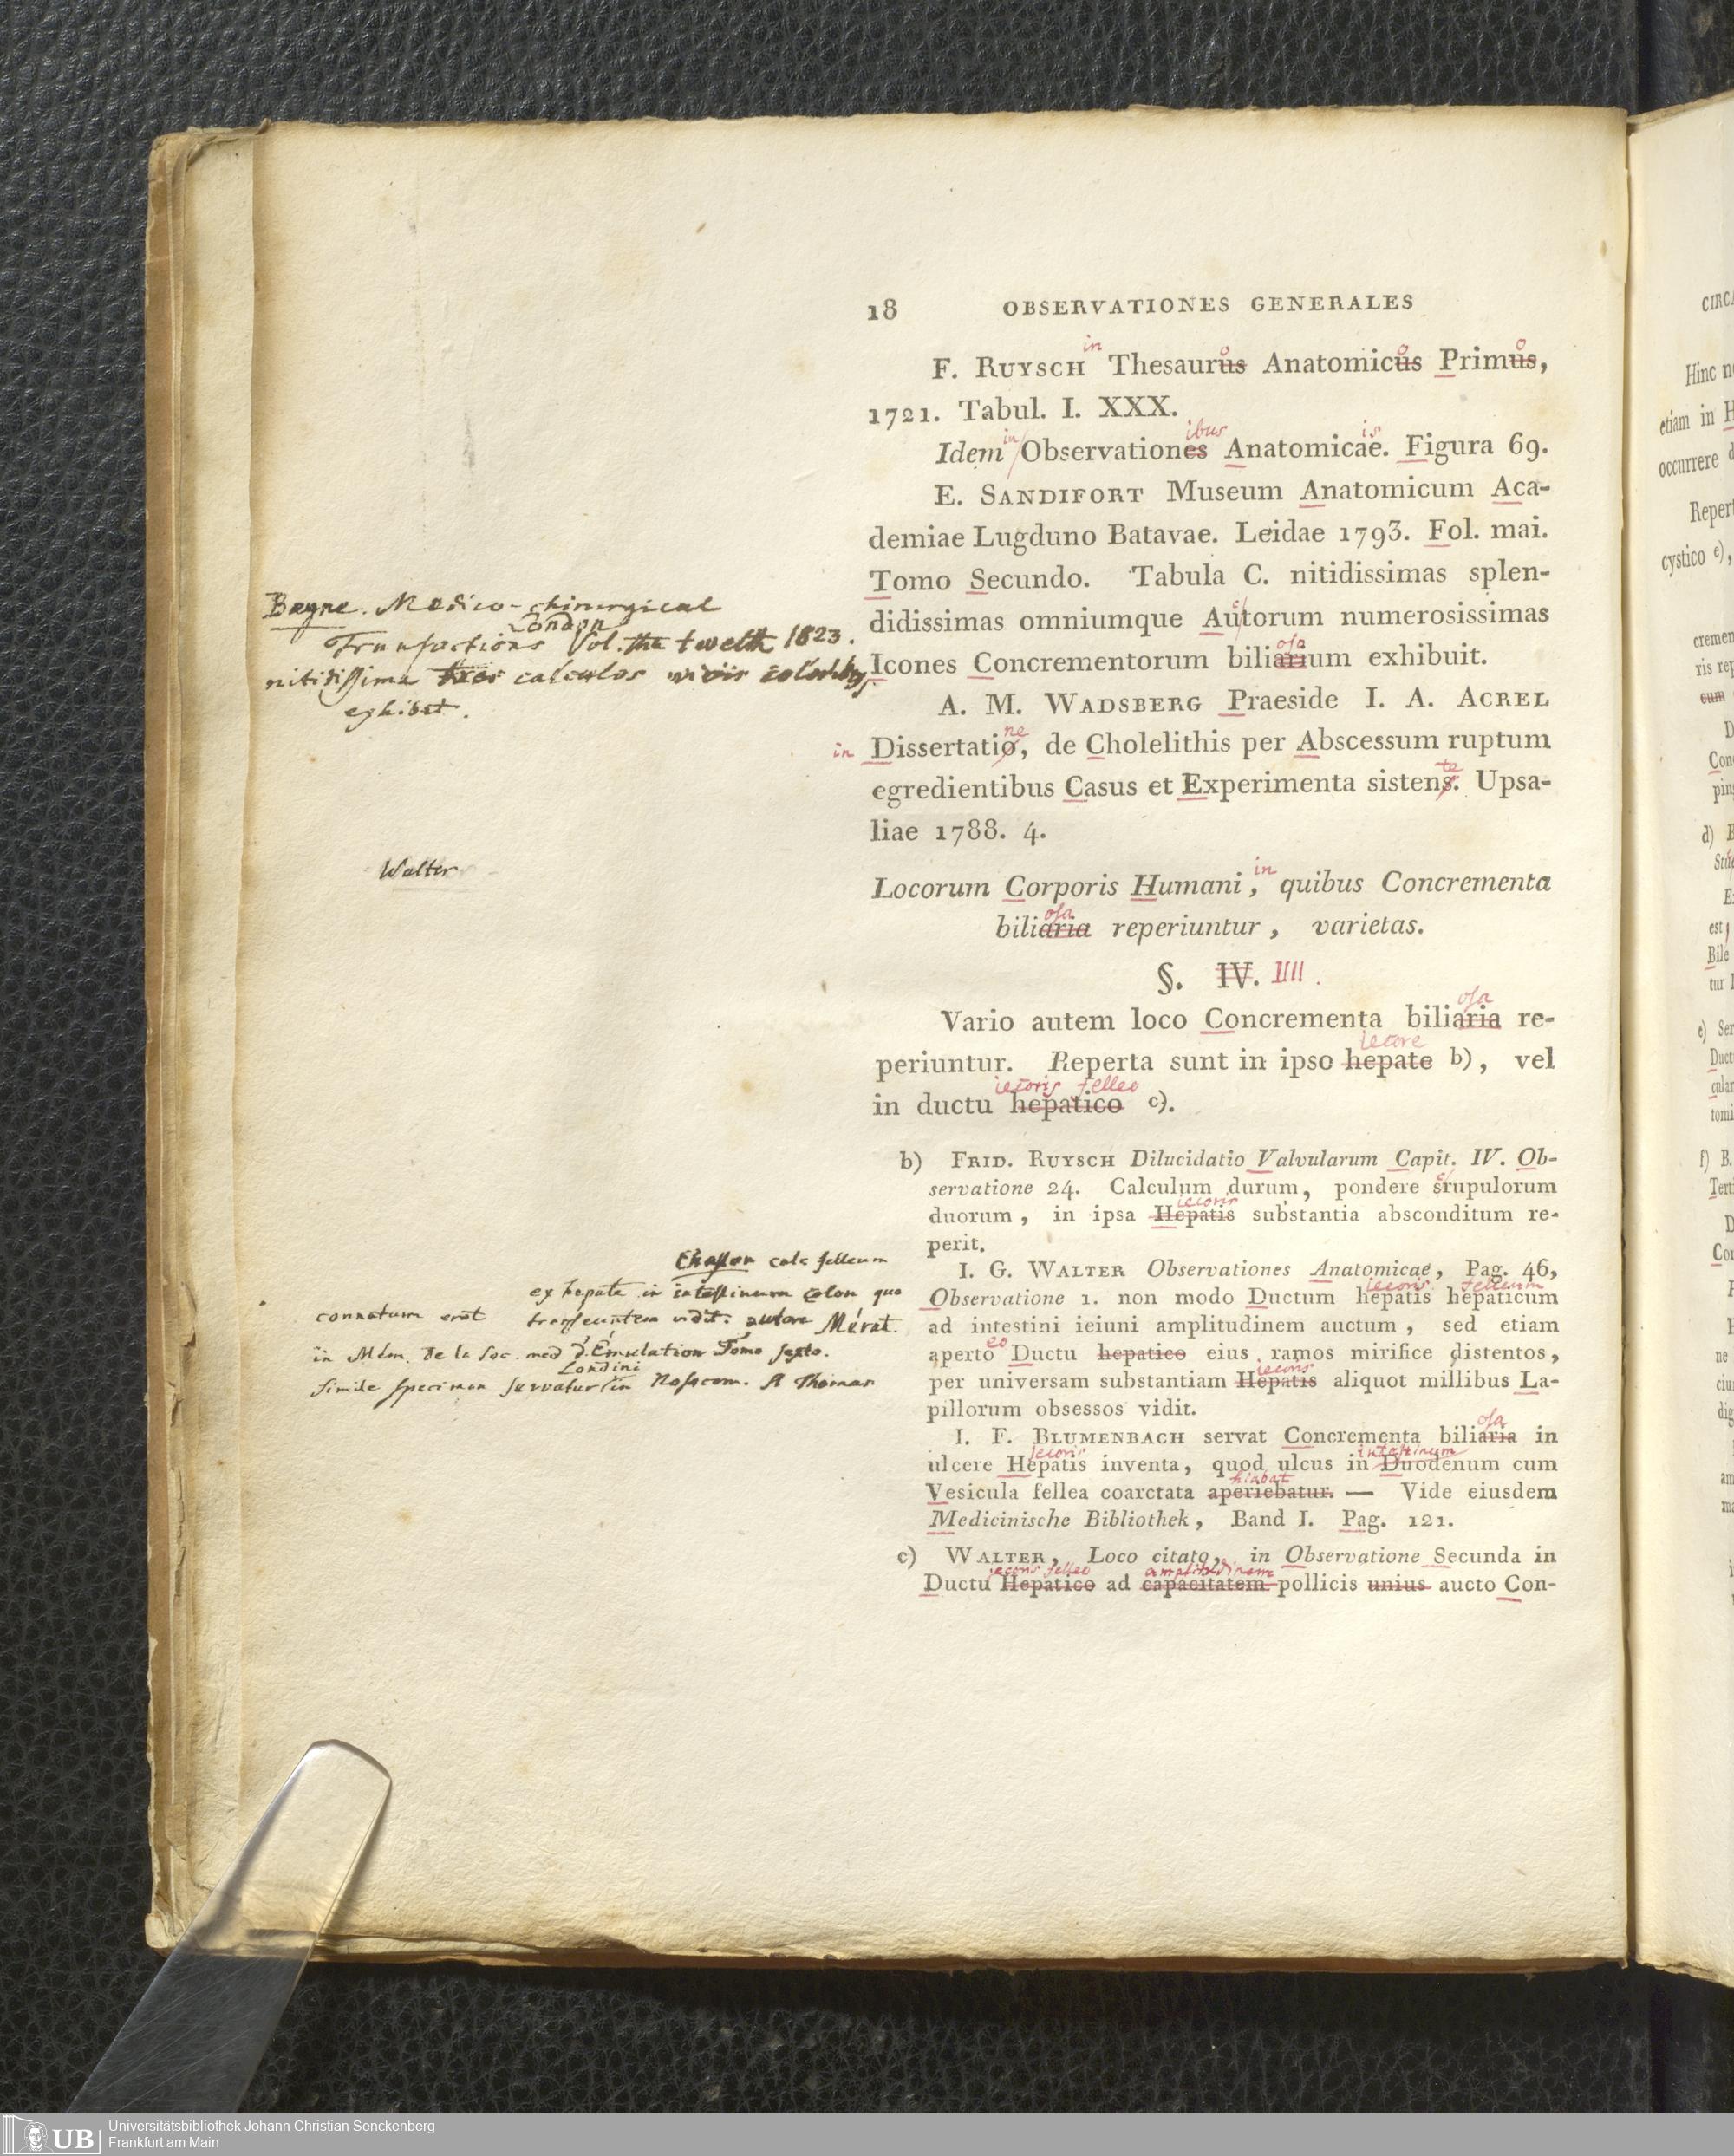 18 OBSERVATIONES GENERALES
in o o o
F. RUYSCH Thesaurus Anatomicus Primus,
1721. Tabul. I. XXX.
in ibus is
Idem Observationes Anatomicae. Figura 69.
E. SANDIFORT Museum Anatomicum Aca-
demiae Lugduno Batavae. Leidae 1793. Fol. mai.
Tomo Secundo. Tabula C. nitidissimas splen-
c
didissimas omniumque Autorum numerosissimas
osa
Icones Concrementorum biliarium exhibuit.
A. M. WADSBERG Praeside I. A. ACREL
ne
in Dissertatio, de Cholelithis per Abscessum ruptum
te
egredientibus Casus et Experimenta sistens. Upsa-
liae 1788. 4.
in
Locorum Corporis Humani, quibus Concrementa
osa
biliaria reperiuntur, varietas.
§. IV. IIII.
osa
Vario autem loco Concrementa biliaria re-
iecore
periuntur. Reperta sunt in ipso hepate b), vel
iecoris felleo
in ductu hepatico c).
b) FRID. RUYSCH Dilucidatio Valvularum Capit. IV. Ob-
c
servatione 24. Calculum durum, pondere srupulorum
iecoris
duorum, in ipsa Hepatis substantia absconditum re-
perit.
I. G. WALTER Observationes Anatomicae, Pag. 46,
iecoris felleum
Observatione 1. non modo Ductum hepatis hepaticum
ad intestini ieiuni amplitudinem auctum, sed etiam
eo
aperto Ductu hepatico eius ramos mirifice distentos,
iecoris
per universam substantiam Hepatis aliquot millibus La-
pillorum obsessos vidit.
osa
I. F. BLUMENBACH servat Concrementa biliaria in
iecoris intestinum
ulcere Hepatis inventa, quod ulcus in Duodenum cum
hiabat
Vesicula fellea coarctata aperiebatur. — Vide eiusdem
Medicinische Bibliothek, Band I. Pag. 121.
c) WALTER, Loco citato, in Observatione Secunda in
iecoris felleo amplitudinem
Ductu Hepatico ad capacitatem pollicis unius aucto Con-
Bayne. Medico-chirurgical
London
Transactions Vol. the twelth 1823.
nitidissima calculos coloribus
exhibet.
Walter
calc felleum
ex hepate in intestinum colon quo
connatum erat transeuntem vidit. autore Mérat.
in Mém. de la Soc. med d'Émulation Tomo sexto.
Londini
Simile specimen servatur in Nosocom. St Thomas
CIRCA
Hinc n
etiam in H
occurrere
Repert
cystico e),
cremen
ris rep
cum
Con
ping
d) B
est,
Bile
tur
e) Ser
Duct
cular
tomi
f) B.
Terti
Con
ne
ciu
dig
Universitätsbibliothek Johann Christian Senckenberg
UB Frankfurt am Main